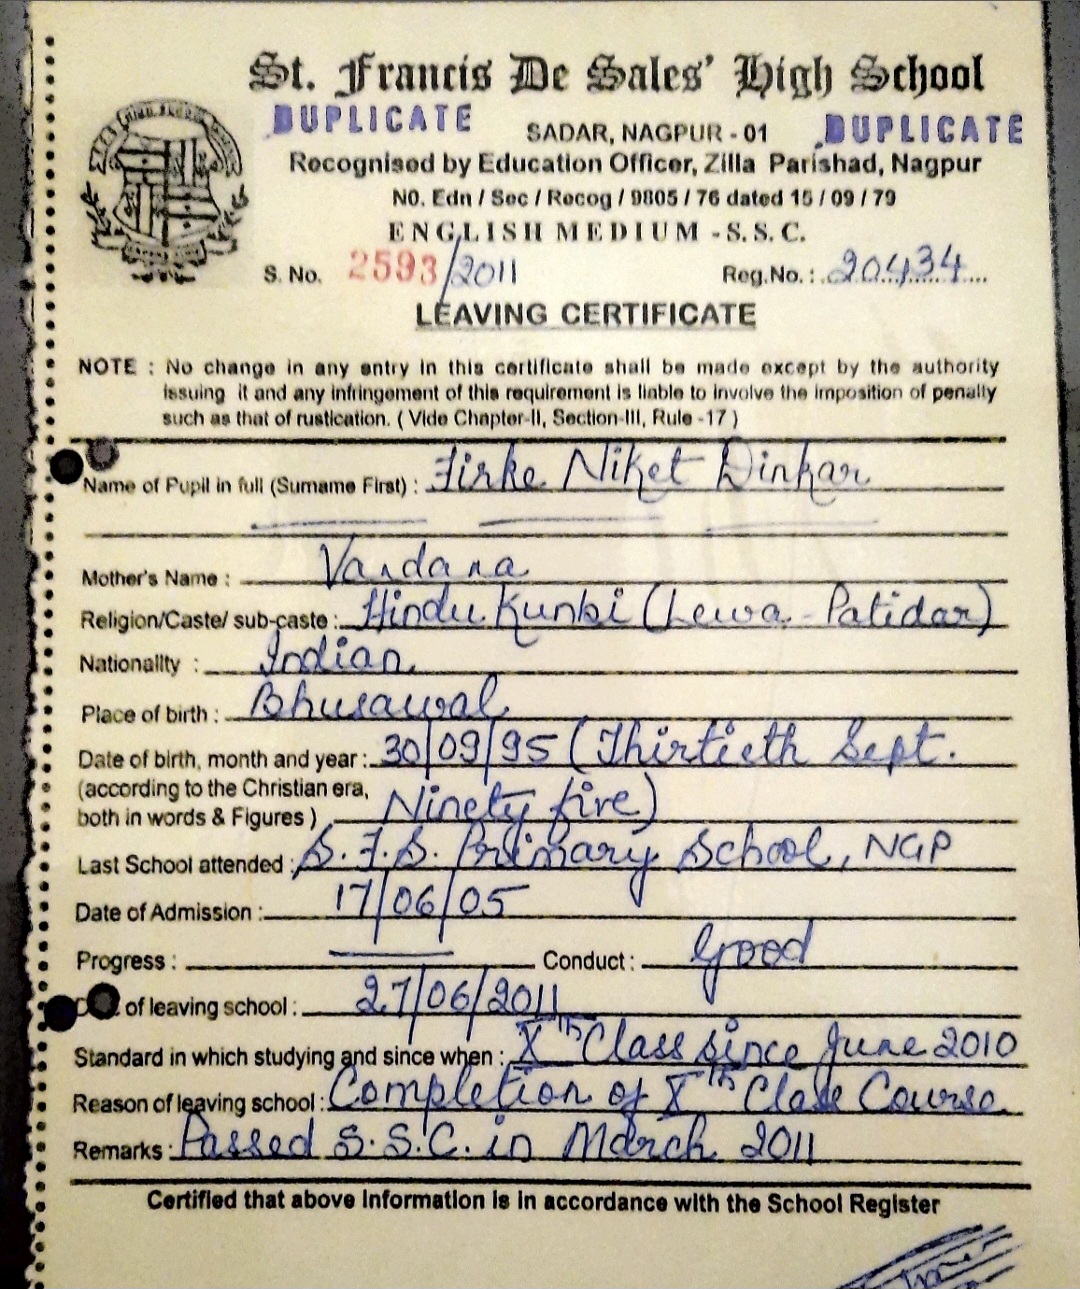 St. Francis De Sales' High School
DUPLICATE DUPLICATE
SADAR, NAGPUR - 01
Recognised by Education Officer, Zilla Parishad, Nagpur
NO. Edn / Sec / Recog / 9805 / 76 dated 15 / 09 / 79
ENGLISH MEDIUM - S.S.C.
S. No. 2593/2011 Reg.No. : 20434
LEAVING CERTIFICATE
NOTE : No change in any entry in this certificate shall be made except by the authority
issuing it and any infringement of this requirement is liable to involve the imposition of penalty
such as that of rustication. ( Vide Chapter-II, Section-III, Rule -17 )
Name of Pupil in full (Surname First) : Firke Niket Dinkar
Mother's Name : Vandana
Religion/Caste/ sub-caste : Hindu Kunbi (Lewa-Patidar)
Nationality : Indian
Place of birth : Bhusawal
Date of birth, month and year : 30/09/95 (Thirtieth Sept.
(according to the Christian era,
both in words & Figures ) Ninety five)
Last School attended : S.F.S. Primary School, NGP
Date of Admission : 17/06/05
Progress : Conduct : Good
of leaving school : 27/06/2011
Standard in which studying and since when : Xth Class since June 2010
Reason of leaving school : Completion of Xth Class Course
Remarks : Passed S.S.C. in March 2011
Certified that above Information is in accordance with the School Register